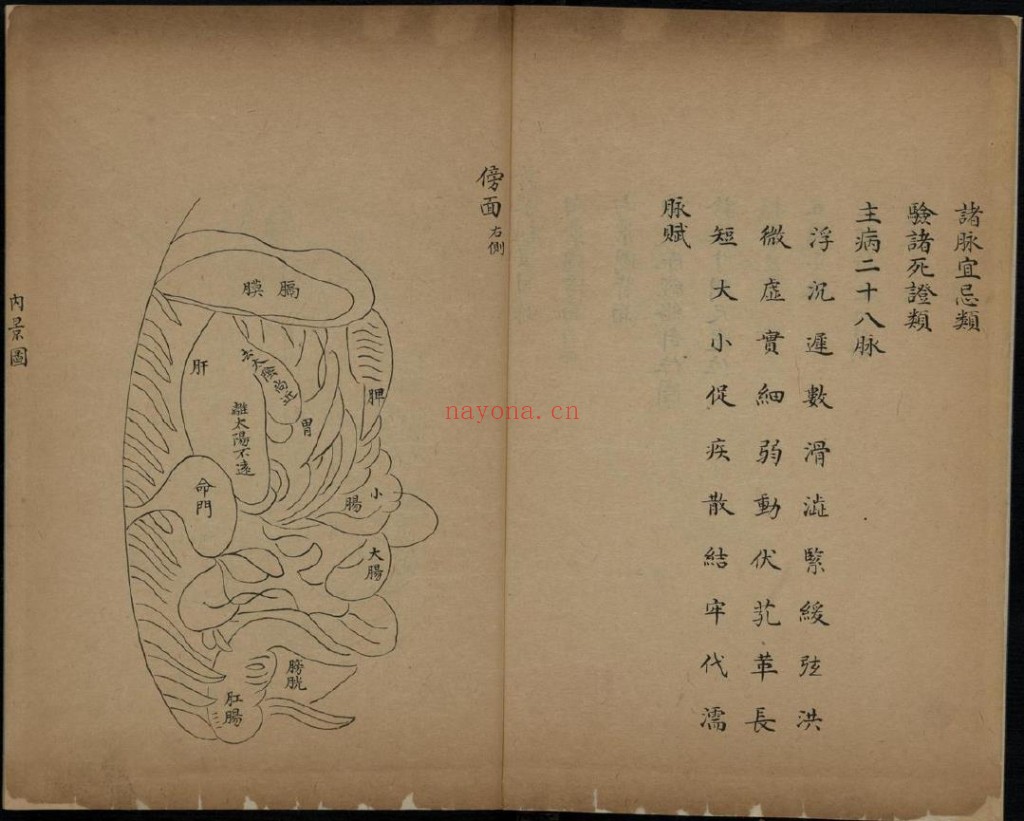 諸脉宜忌類
驗諸死證類
主病二十八脉
浮沉遲數滑澁緊緩弦洪
微虛實細弱動伏芤革長
短大小促疾散結牢代濡
脉賦
傍面右側
膈膜
肝
離太陽不遠
胃
胆
小腸
命門
大腸
膀胱
肛腸
内景圖
nayona.cn